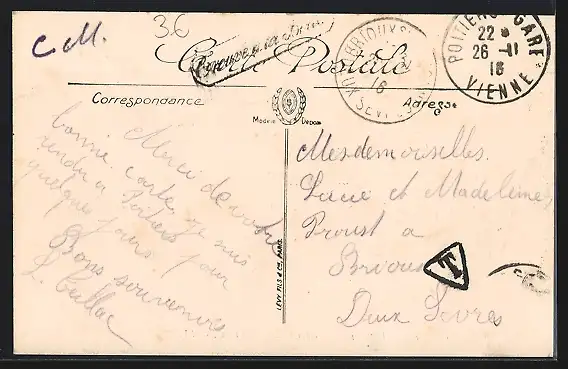 36
C.M.
Trouvé à la Boîte
Carte Postale
BRIOUX-
16
POITIERS-GARE
22 *
26 -11
16
VIENNE
Correspondance
Adresse
Modèle Déposé
Merci de votre
bonne carte, je suis
rendu à Poitiers
quelques jours pour
Bons souvenirs
Mesdemoiselles.
Lucie et Madeleine
Proust a
Brioux
Deux Sevres
T
LEVY FILS & Cie. PARIS